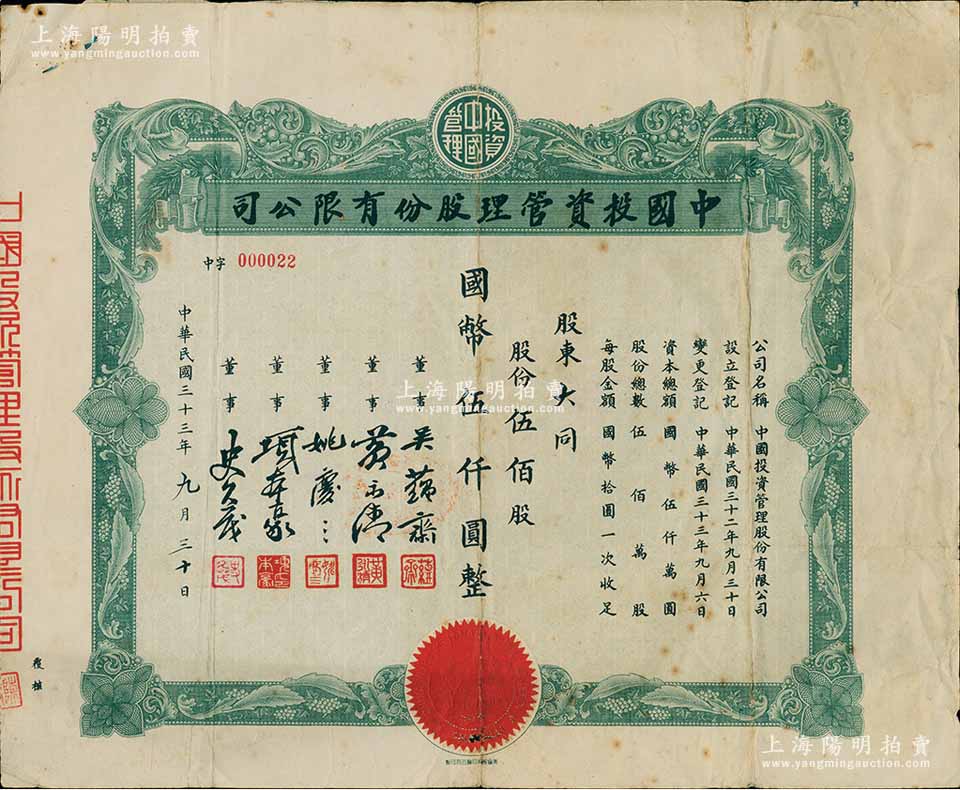 上海陽明拍賣
www.yangmingauction.com
投資
中國
管理
中國投資管理股份有限公司
中字 000022
公司名稱 中國投資管理股份有限公司
設立登記 中華民國三十二年九月三十日
變更登記 中華民國三十三年九月六日
資本總額 國幣伍仟萬圓
股份總數 伍佰萬股
每股金額 國幣拾圓一次收足
股東大同
股份伍佰股
國幣伍仟圓整
董事 吳蘊齋
董事
董事 姚慶三
董事 項本豪
董事 史久茂
中華民國三十三年九月三十日
覆核
上海陽明拍賣
www.yangmingauction.com
上海陽明拍賣
www.yangmingauction.com